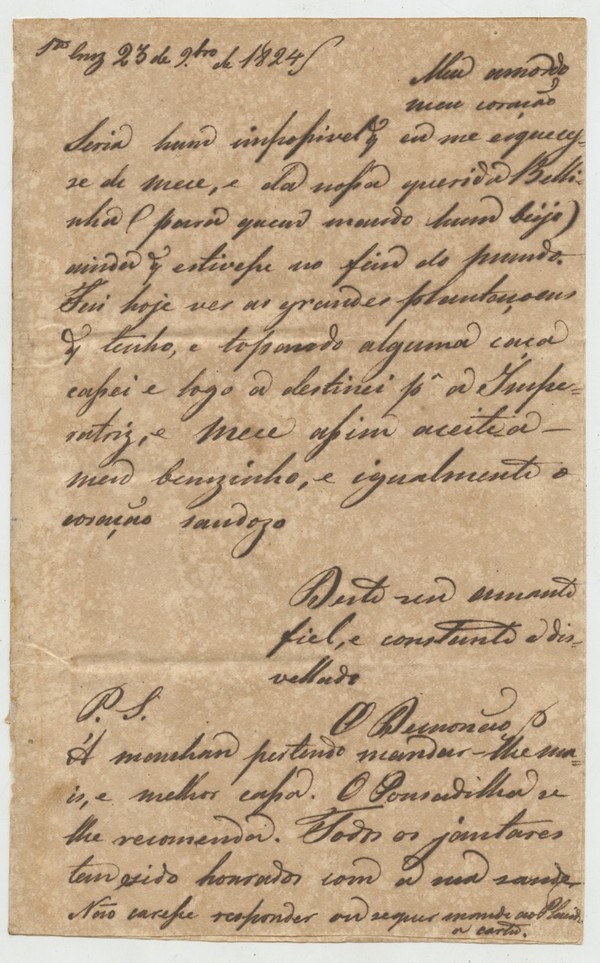 Sta Cruz 23 de 9.bro de 1824
Meu amordo
meu coração
Seria hum impossivel q eu me esquecy-
se de mece, e da nossa querida Belli-
nha (para quem mando hum beijo)
ainda q estivesse no fim do mundo.
Fui hoje ver as grandes plantaçoens
q tenho, e topando alguma caça
cassei e logo a destinei pª a Impe-
ratriz, e Mece assim aceite-a
meu bemzinho, e igualmente o
coração saudozo
Deste seu amante
fiel, e constante e dis-
vellado
P. S.
O Demonão
A manhan pertendo mandar-lhe ma-
is, e melhor cassa. O Pousadilha se
lhe recomenda. Todos os jantares
tem sido honrados com a sua saude
Não caresse responder ou sequer mande ao Placido
a carta.